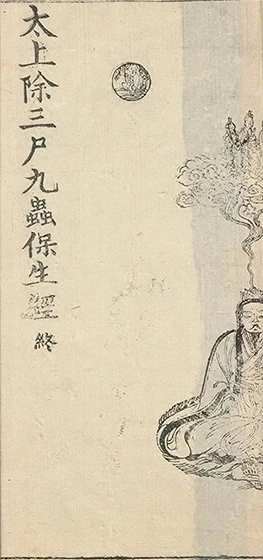 太上除三尸九蟲保生經終